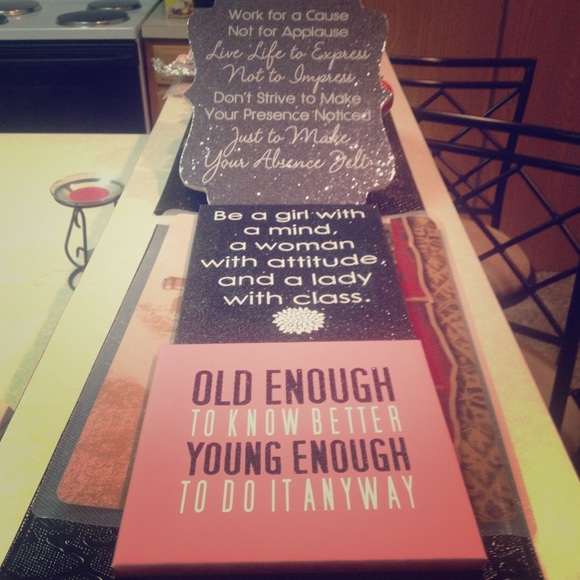 Work for a Cause
Not for Applause
Live Life to Express
Not to Impress
Don't Strive to Make
Your Presence Noticed
Just to Make
Your Absence Felt
Be a girl with
a mind,
a woman
with attitude,
and a lady
with class.
OLD ENOUGH
TO KNOW BETTER
YOUNG ENOUGH
TO DO IT ANYWAY